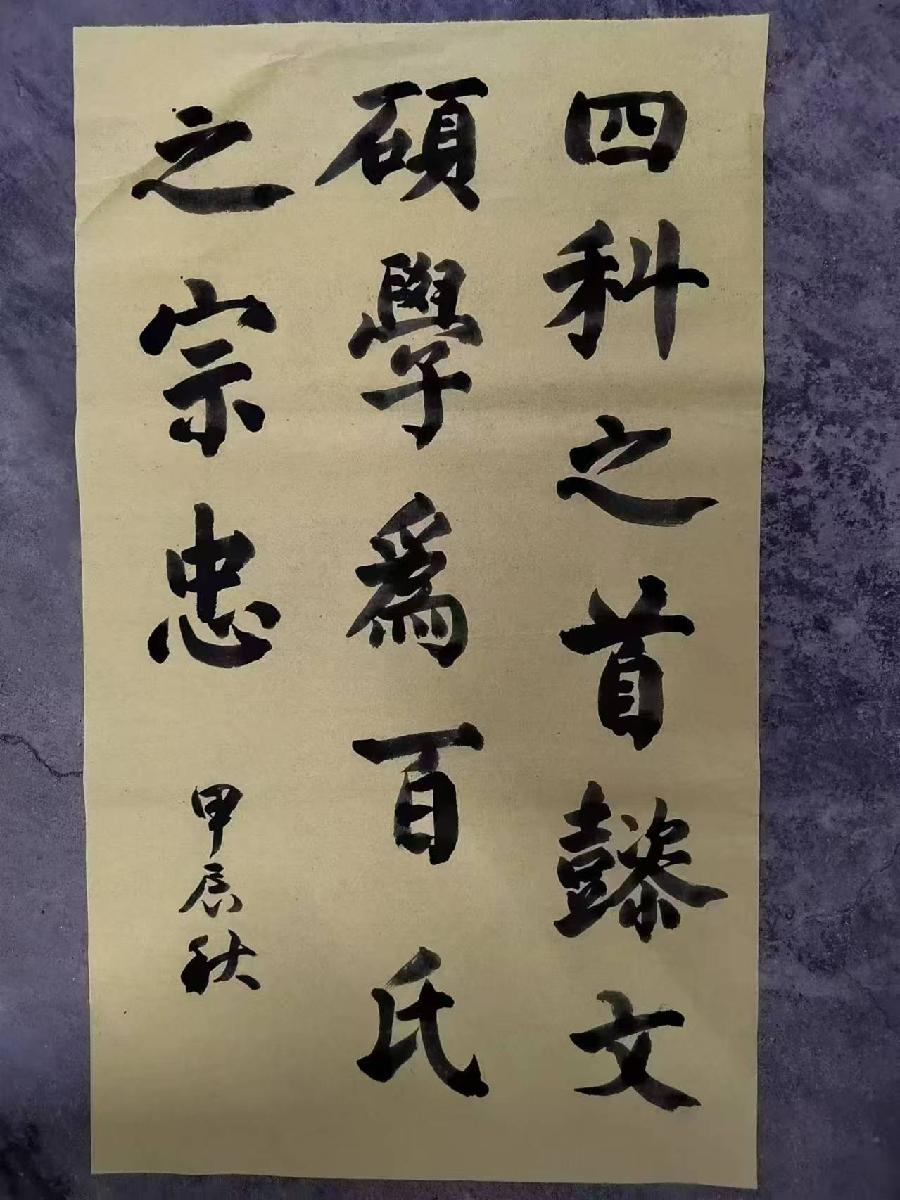 四科之首懿文
碩學爲百氏
之宗忠
甲辰秋